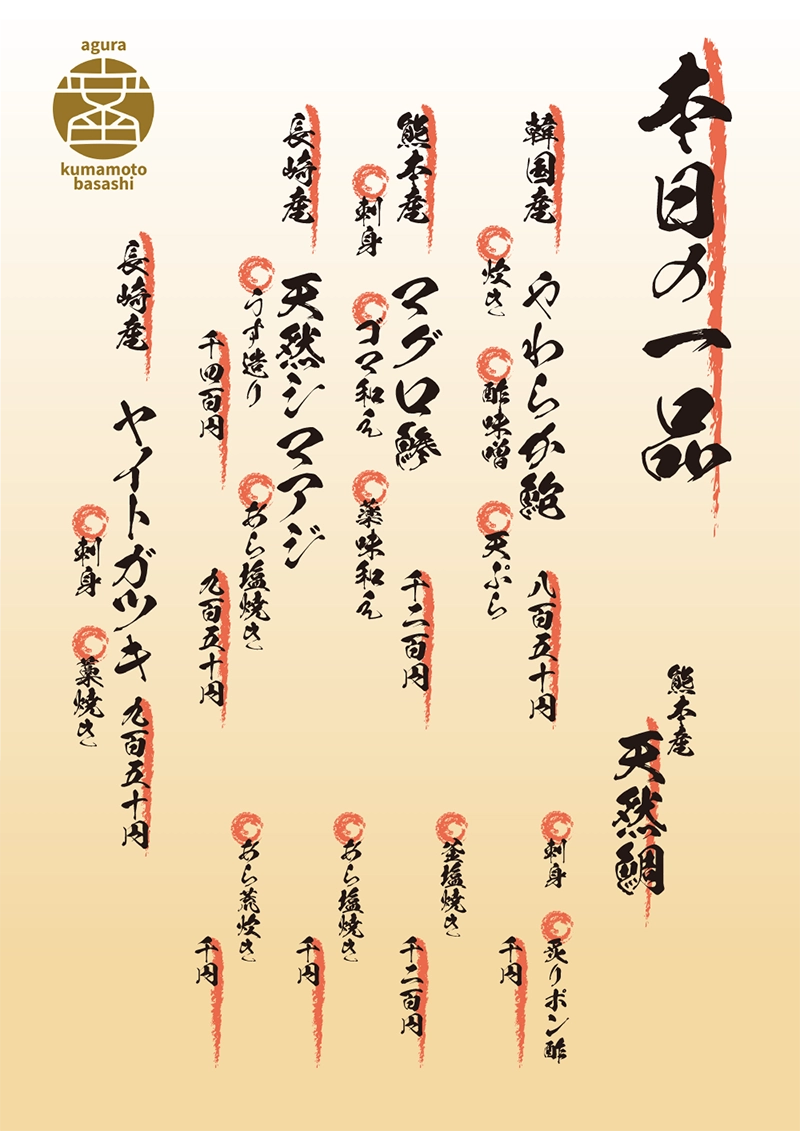 本日の一品
韓国産
やわらか鮑
八百五十円
炊き
酢味噌
天ぷら
熊本産
マグロ鰺
千二百円
刺身
ゴマ和え
薬味和え
長崎産
天然シマアジ
うす造り
千四百円
あら塩焼き
九百五十円
長崎産
ヤイトガツキ
九百五十円
刺身
藁焼き
熊本産
天然鯛
刺身
炙りポン酢
千円
釜塩焼き
千二百円
あら塩焼き
千円
あら荒炊き
千円
agura
kumamoto
basashi